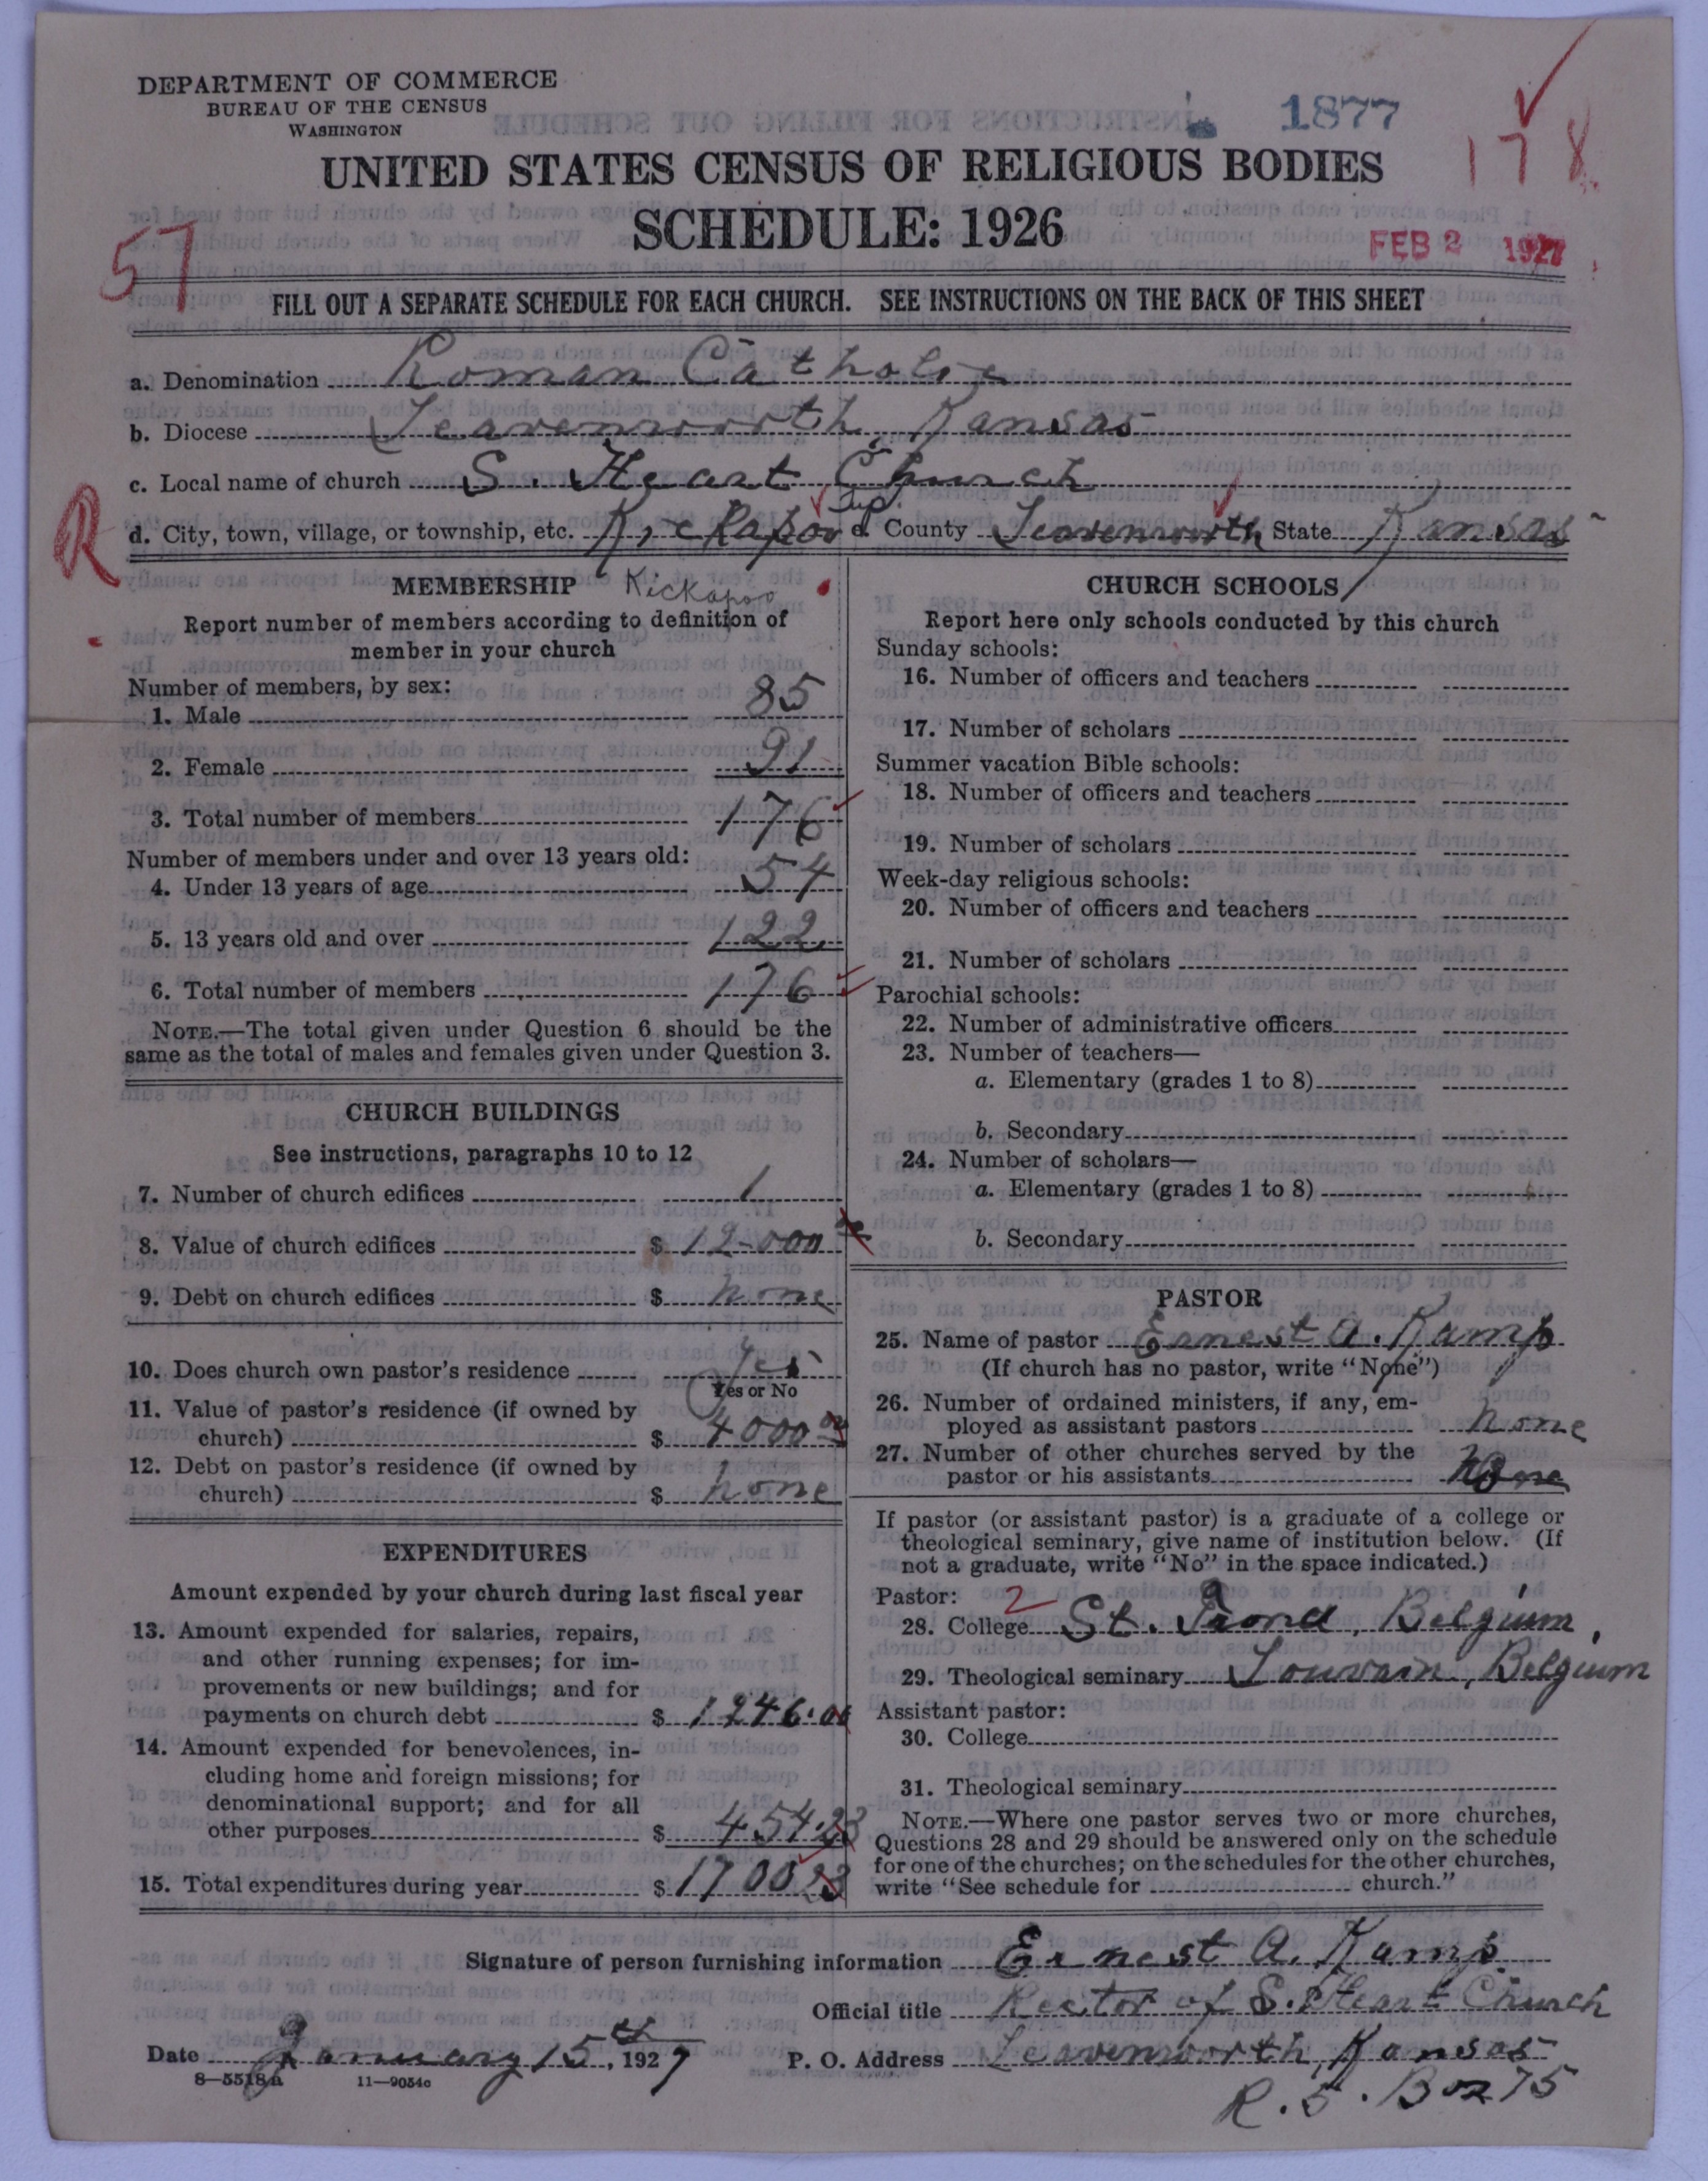 DEPARTMENT OF COMMERCE
BUREAU OF THE CENSUS
WASHINGTON
1877
178
UNITED STATES CENSUS OF RELIGIOUS BODIES
SCHEDULE: 1926
FEB 2 1927
57
FILL OUT A SEPARATE SCHEDULE FOR EACH CHURCH. SEE INSTRUCTIONS ON THE BACK OF THIS SHEET
a. Denomination Roman Catholic
b. Diocese Leavenworth, Kansas
c. Local name of church S. Heart Church
R
d. City, town, village, or township, etc. Kickapoo Twp. d. County Leavenworth State Kansas
MEMBERSHIP Kickapoo
Report number of members according to definition of
member in your church
Number of members, by sex:
1. Male 85
2. Female 91
3. Total number of members 176
Number of members under and over 13 years old:
4. Under 13 years of age 54
5. 13 years old and over 122
6. Total number of members 176
NOTE.—The total given under Question 6 should be the
same as the total of males and females given under Question 3.
CHURCH BUILDINGS
See instructions, paragraphs 10 to 12
7. Number of church edifices 1
8. Value of church edifices $ 12-000
9. Debt on church edifices $ none
10. Does church own pastor's residence Yes
Yes or No
11. Value of pastor's residence (if owned by
church) $ 4000
12. Debt on pastor's residence (if owned by
church) $ none
EXPENDITURES
Amount expended by your church during last fiscal year
13. Amount expended for salaries, repairs,
and other running expenses; for im-
provements or new buildings; and for
payments on church debt $ 1246.00
14. Amount expended for benevolences, in-
cluding home and foreign missions; for
denominational support; and for all
other purposes $ 454.23
15. Total expenditures during year $ 1700 23
CHURCH SCHOOLS
Report here only schools conducted by this church
Sunday schools:
16. Number of officers and teachers
17. Number of scholars
Summer vacation Bible schools:
18. Number of officers and teachers
19. Number of scholars
Week-day religious schools:
20. Number of officers and teachers
21. Number of scholars
Parochial schools:
22. Number of administrative officers
23. Number of teachers—
a. Elementary (grades 1 to 8)
b. Secondary
24. Number of scholars—
a. Elementary (grades 1 to 8)
b. Secondary
PASTOR
25. Name of pastor Ernest A. Kamp
(If church has no pastor, write "None")
26. Number of ordained ministers, if any, em-
ployed as assistant pastors none
27. Number of other churches served by the
pastor or his assistants None
If pastor (or assistant pastor) is a graduate of a college or
theological seminary, give name of institution below. (If
not a graduate, write "No" in the space indicated.)
Pastor: 2
28. College St. Trond, Belgium,
29. Theological seminary Louvain, Belgium
Assistant pastor:
30. College
31. Theological seminary
NOTE.—Where one pastor serves two or more churches,
Questions 28 and 29 should be answered only on the schedule
for one of the churches; on the schedules for the other churches,
write "See schedule for church."
Signature of person furnishing information Ernest A. Kamp.
Official title Rector of S. Heart Church
Date January 15th, 1927 P. O. Address Leavenworth, Kansas
8—5518a 11—9054c
R. 5. Box 75